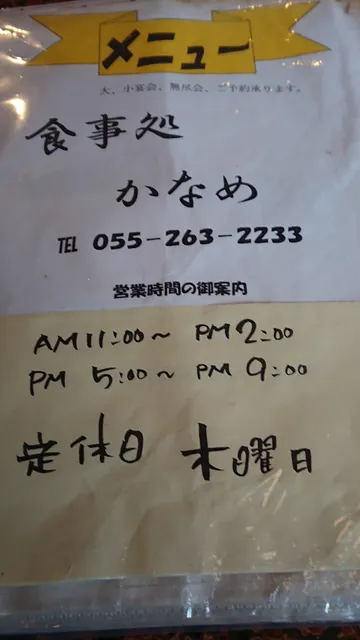 メニュー
大、小宴会、無尽会、ご予約承ります。
食事処
かなめ
TEL 055-263-2233
営業時間の御案内
AM11:00～ PM2:00
PM 5:00～ PM 9:00
定休日 木曜日